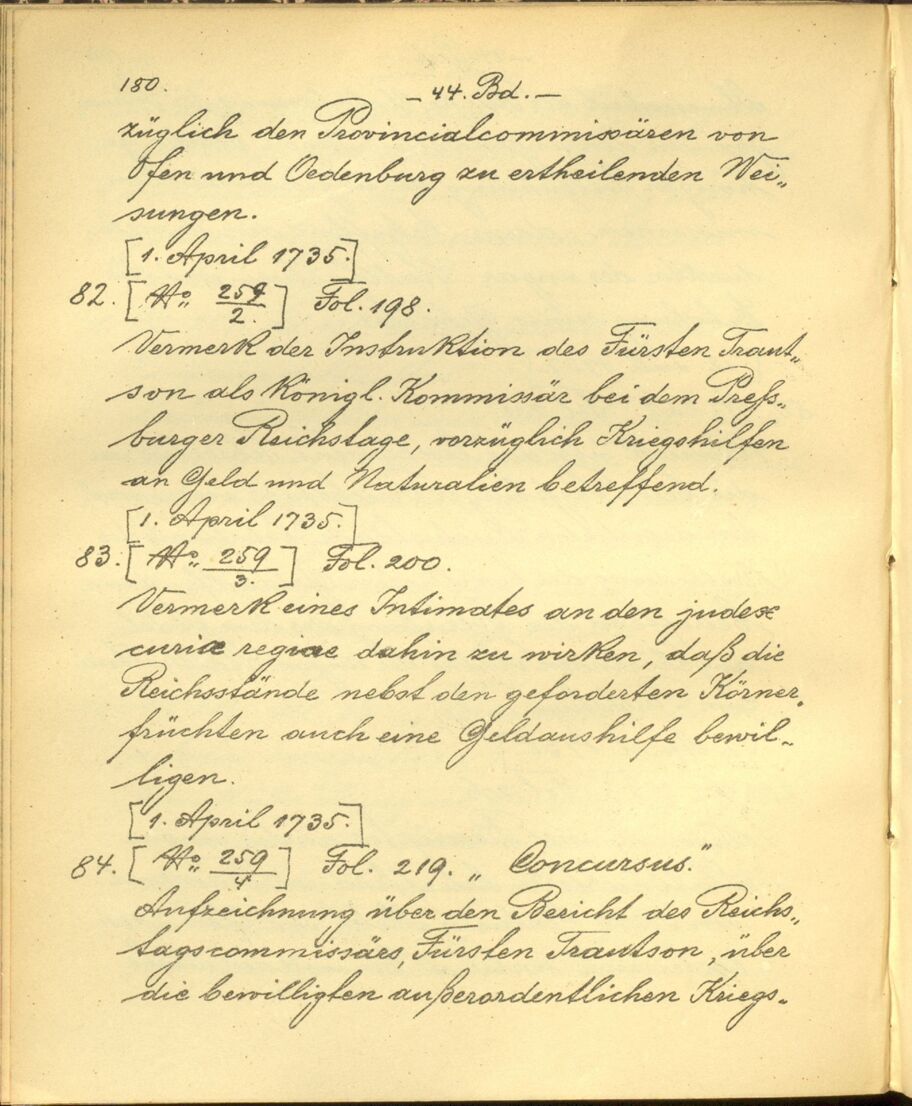 180.
– 44. Bd. –
züglich den Provincialcommissären von
Ofen und Oedenburg zu ertheilenden Wei„
sungen.
[1. April 1735.]
82. [No: 259/2.] Fol. 198.
Vermerk der Instruktion des Fürsten Traut„
son als Königl. Kommissär bei dem Preß„
burger Reichstage, vorzüglich Kriegshilfen
an Geld und Naturalien betreffend.
[1. April 1735.]
83. [No: 259/3.] Fol. 200.
Vermerk eines Intimates an den judex
curiæ regiae dahin zu wirken, daß die
Reichsstände nebst den geforderten Körner„
früchten auch eine Geldaushilfe bewil„
ligen.
[1. April 1735.]
84. [No: 259/4] Fol. 219. „Concursus."
Aufzeichnung über den Bericht des Reichs„
tagscommissärs, Fürsten Trautson, über
die bewilligten außerordentlichen Kriegs„